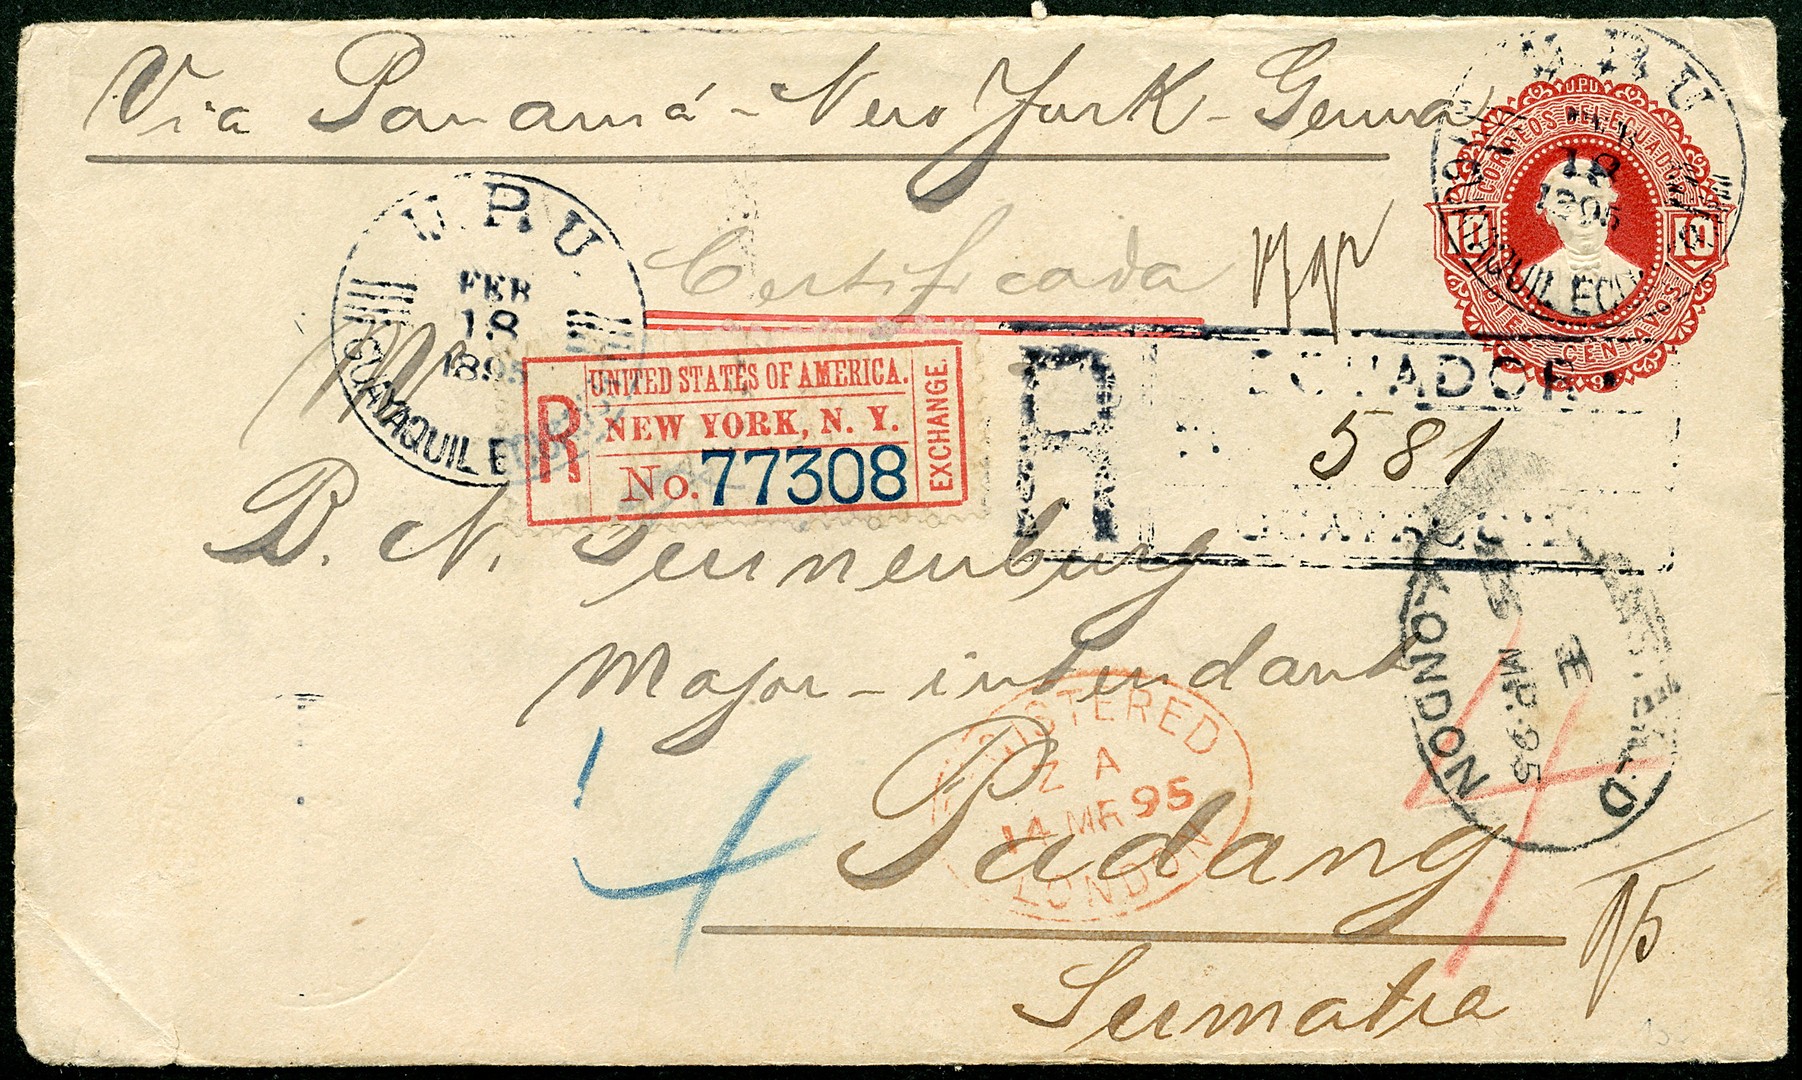 Via Panamá - New York - Genua
U.P.U
CORREOS DEL ECUADOR
10 10
DIEZ CENTAVOS
U.P.U
FEB
18
1895
GUAYAQUIL
U.P.U
18
1895
GUAYAQUIL ECU
Certificada
R
UNITED STATES OF AMERICA.
NEW YORK, N. Y.
No. 77308
EXCHANGE
R
ECUADOR
581
GUAYAQUIL
B. N.
Major - intendant
Padang
Sumatra
REGISTERED
Z A
14 MR 95
LONDON
MR 95
LONDON
4